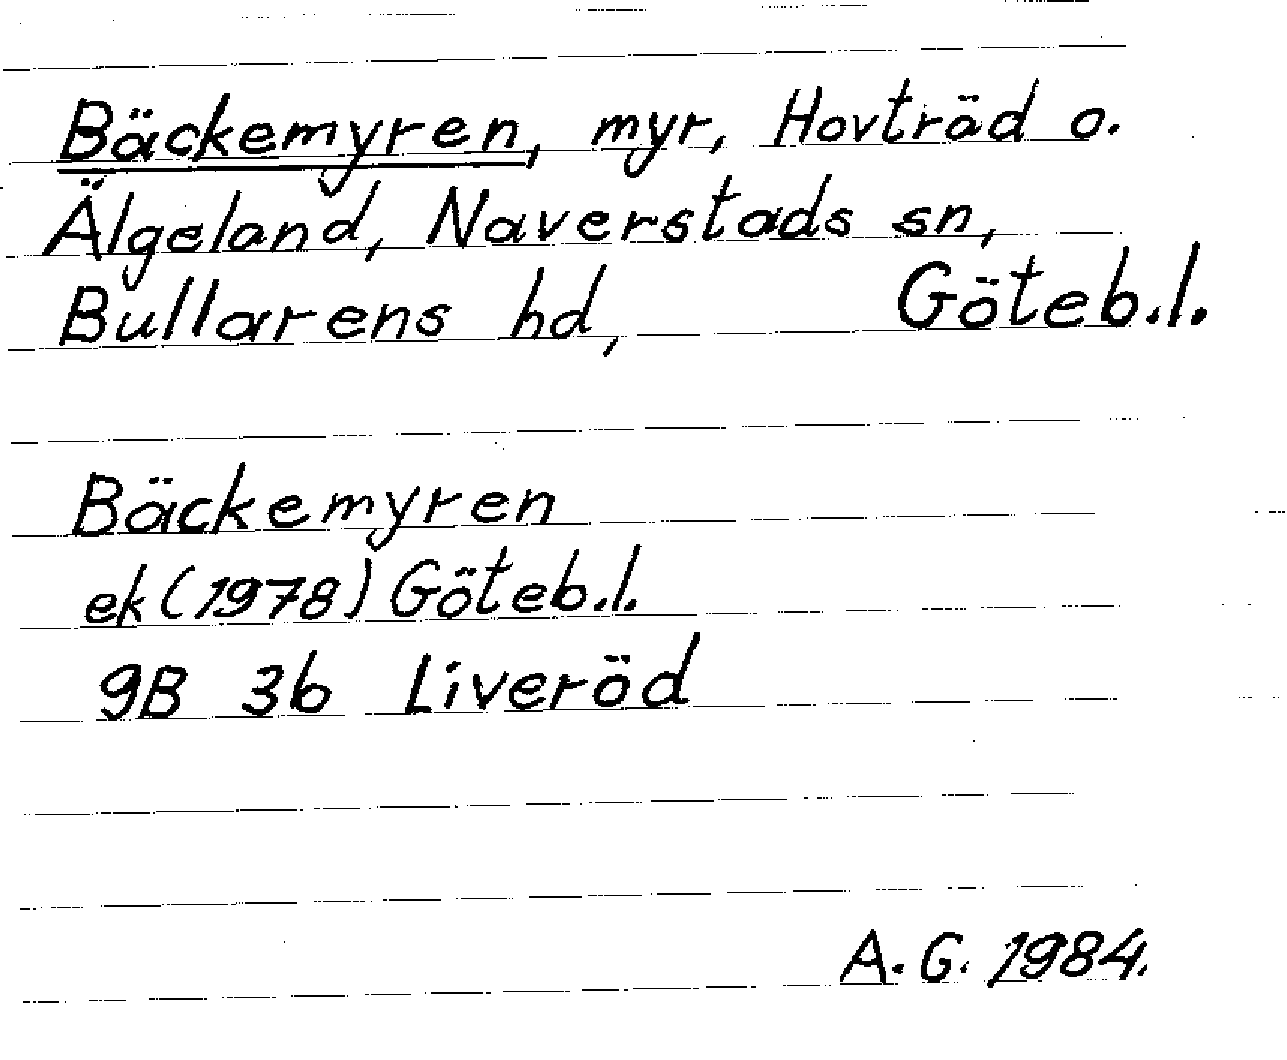 Bäckemyren, myr, Hovträd o.
Älgeland, Naverstads sn,
Bullarens hd, Göteb.l.
Bäckemyren
ek (1978) Göteb.l.
9B 3b Liveröd
A. G. 1984.